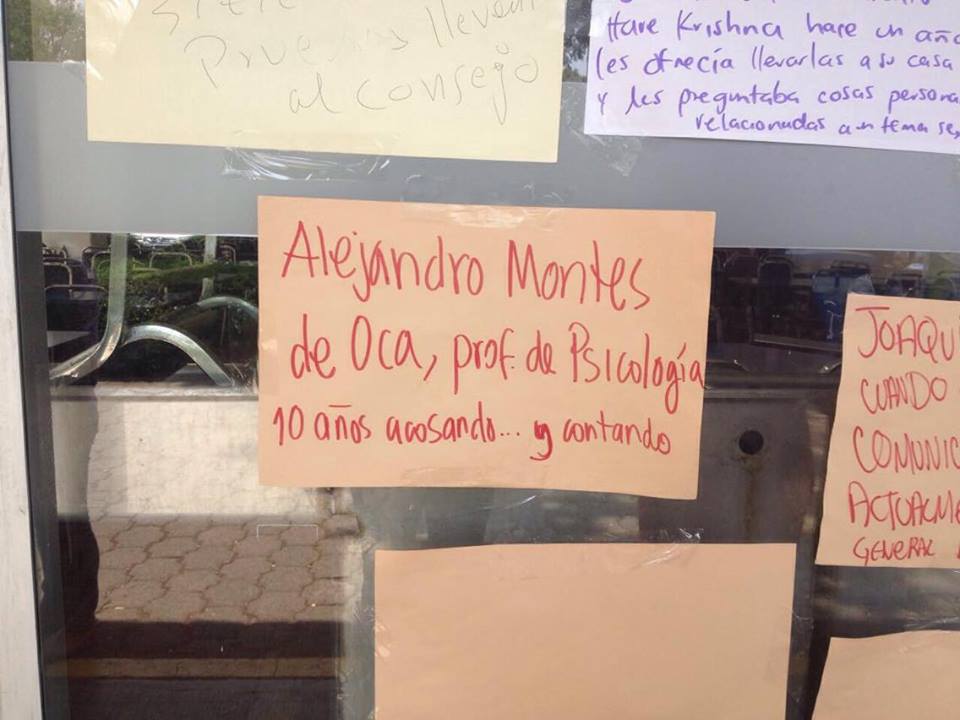 Pruebas lleven
al consejo
Hare Krishna hace un año
les ofrecía llevarlas a su casa
y les preguntaba cosas persona
relacionadas a un tema se
Alejandro Montes
de Oca, prof. de Psicología
10 años acosando... y contando
JOAQU
CUANDO
COMUNIC
ACTUALME
GENERAL